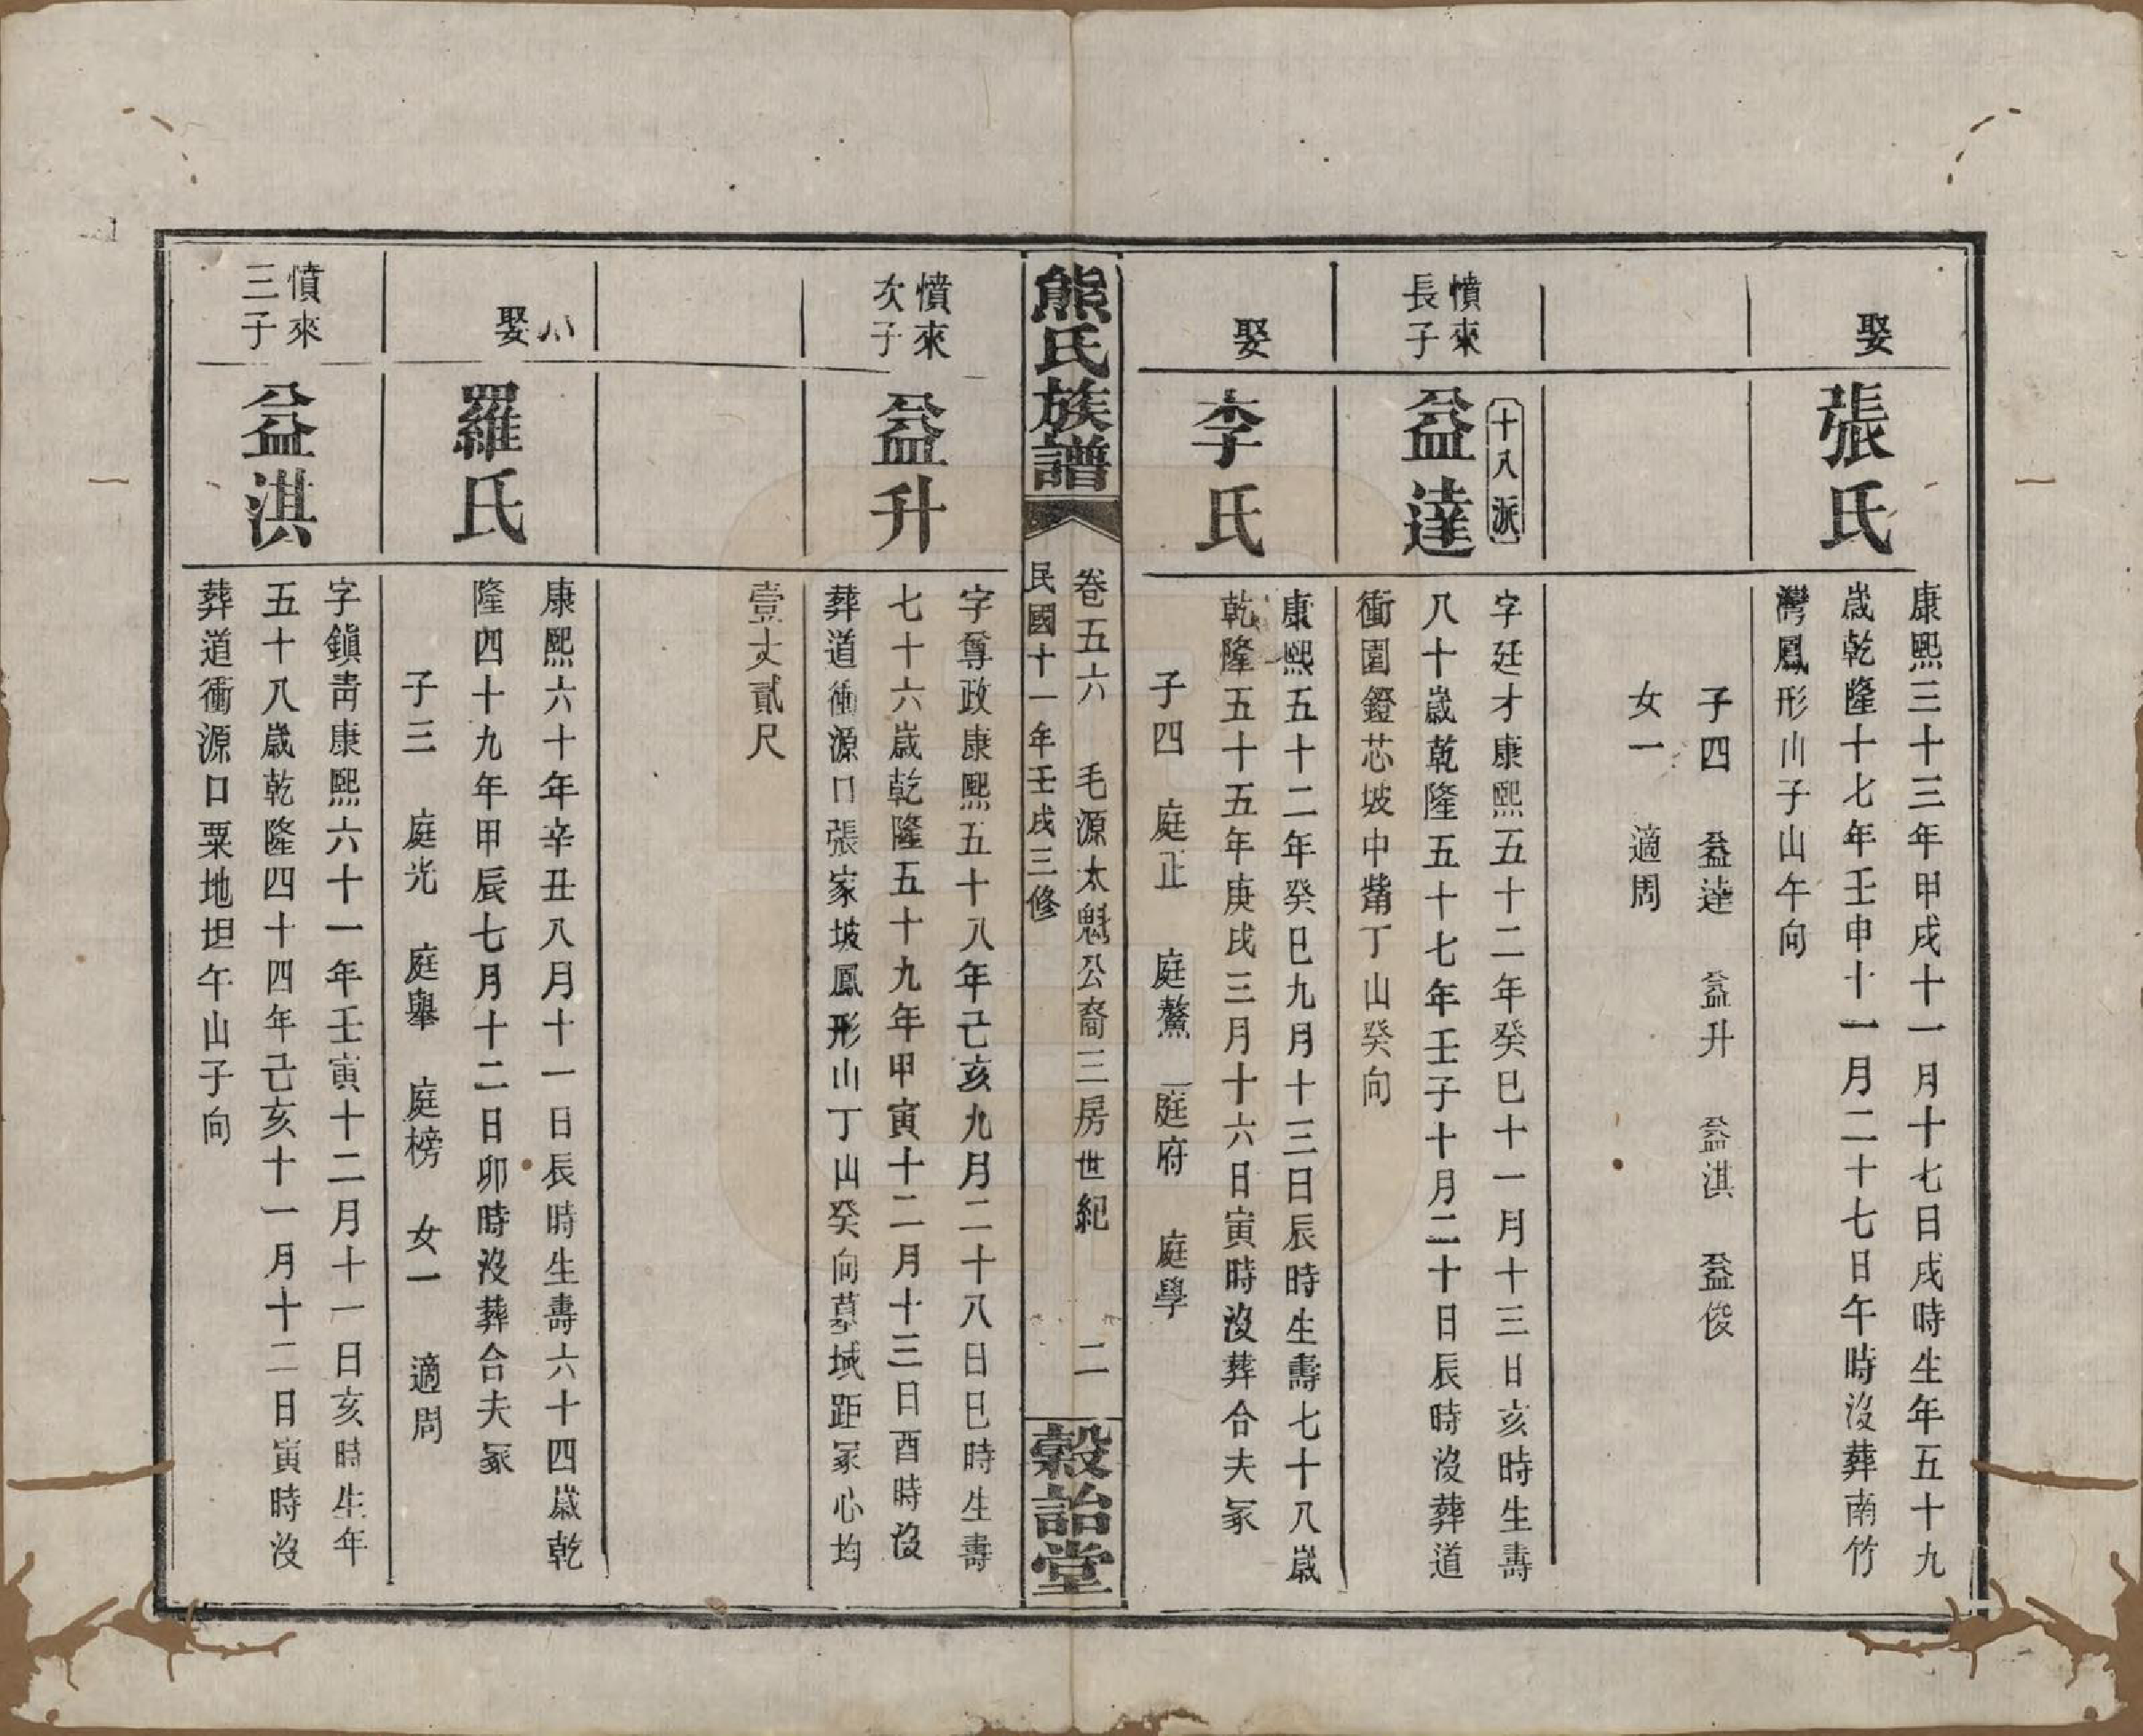 娶
張氏
康熙三十三年甲戌十一月十七日戌時生年五十九
歲乾隆十七年壬申十一月二十七日午時沒葬南竹
灣鳳形山子山午向
子四 益達 益升 益淇 益俊
女一 適周
憤來
長子
十八派
益達
字廷才康熙五十二年癸巳十一月十三日亥時生壽
八十歲乾隆五十七年壬子十月二十日辰時沒葬道
衝園鐙芯坡中觜丁山癸向
娶
李氏
康熙五十二年癸巳九月十三日辰時生壽七十八歲
乾隆五十五年庚戌三月十六日寅時沒葬合夫冢
子四 庭正 庭鰲 庭府 庭學
熊氏族譜
卷五六 毛源太魁公裔三房世紀 二
民國十一年壬戌三修
穀詒堂
憤來
次子
益升
字尊政康熙五十八年己亥九月二十八日巳時生壽
七十六歲乾隆五十九年甲寅十二月十三日酉時沒
葬道衝源口張家坡鳳形山丁山癸向墓域距冢心均
壹丈貳尺
娶
羅氏
康熙六十年辛丑八月十一日辰時生壽六十四歲乾
隆四十九年甲辰七月十二日卯時沒葬合夫冢
子三 庭光 庭舉 庭榜 女一 適周
憤來
三子
益淇
字鎮靑康熙六十一年壬寅十二月十一日亥時生年
五十八歲乾隆四十四年己亥十一月十二日寅時沒
葬道衝源口粟地坦午山子向